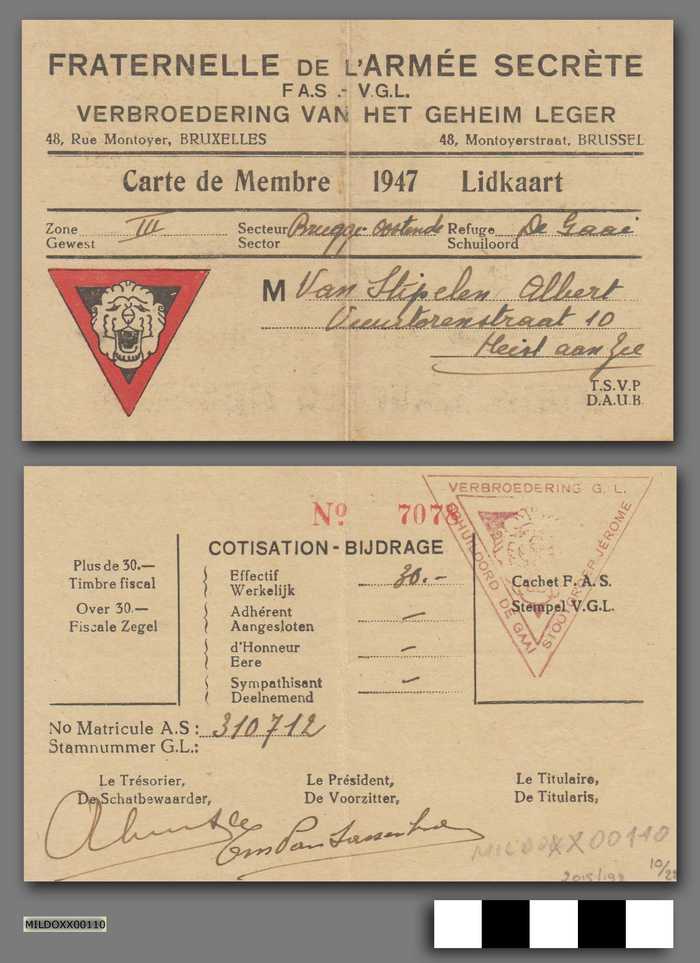 FRATERNELLE DE L'ARMÉE SECRÈTE
F A.S .- V.G.L.
VERBROEDERING VAN HET GEHEIM LEGER
48, Rue Montoyer, BRUXELLES 48, Montoyerstraat, BRUSSEL
Carte de Membre 1947 Lidkaart
Zone III Secteur Brugge-Oostende Refuge De Gaai
Gewest Sector Schuiloord
M Van Stipelen Albert
Vuurtorenstraat 10
Heist aan Zee
T.S.V.P
D.A.U.B.
No 7078
VERBROEDERING G. L.
SCHUILOORD DE GAAI
STOOTGROEP JÉROME
COTISATION - BIJDRAGE
Plus de 30.—
Timbre fiscal
Over 30.—
Fiscale Zegel
Effectif 30.-
Werkelijk
Adhérent —
Aangesloten
d'Honneur —
Eere
Sympathisant —
Deelnemend
Cachet F. A. S.
Stempel V.G.L.
No Matricule A.S : 310712
Stamnummer G.L.:
Le Trésorier, Le Président, Le Titulaire,
De Schatbewaarder, De Voorzitter, De Titularis,
MILDOXX00110
10/22
2015/198
MILDOXX00110